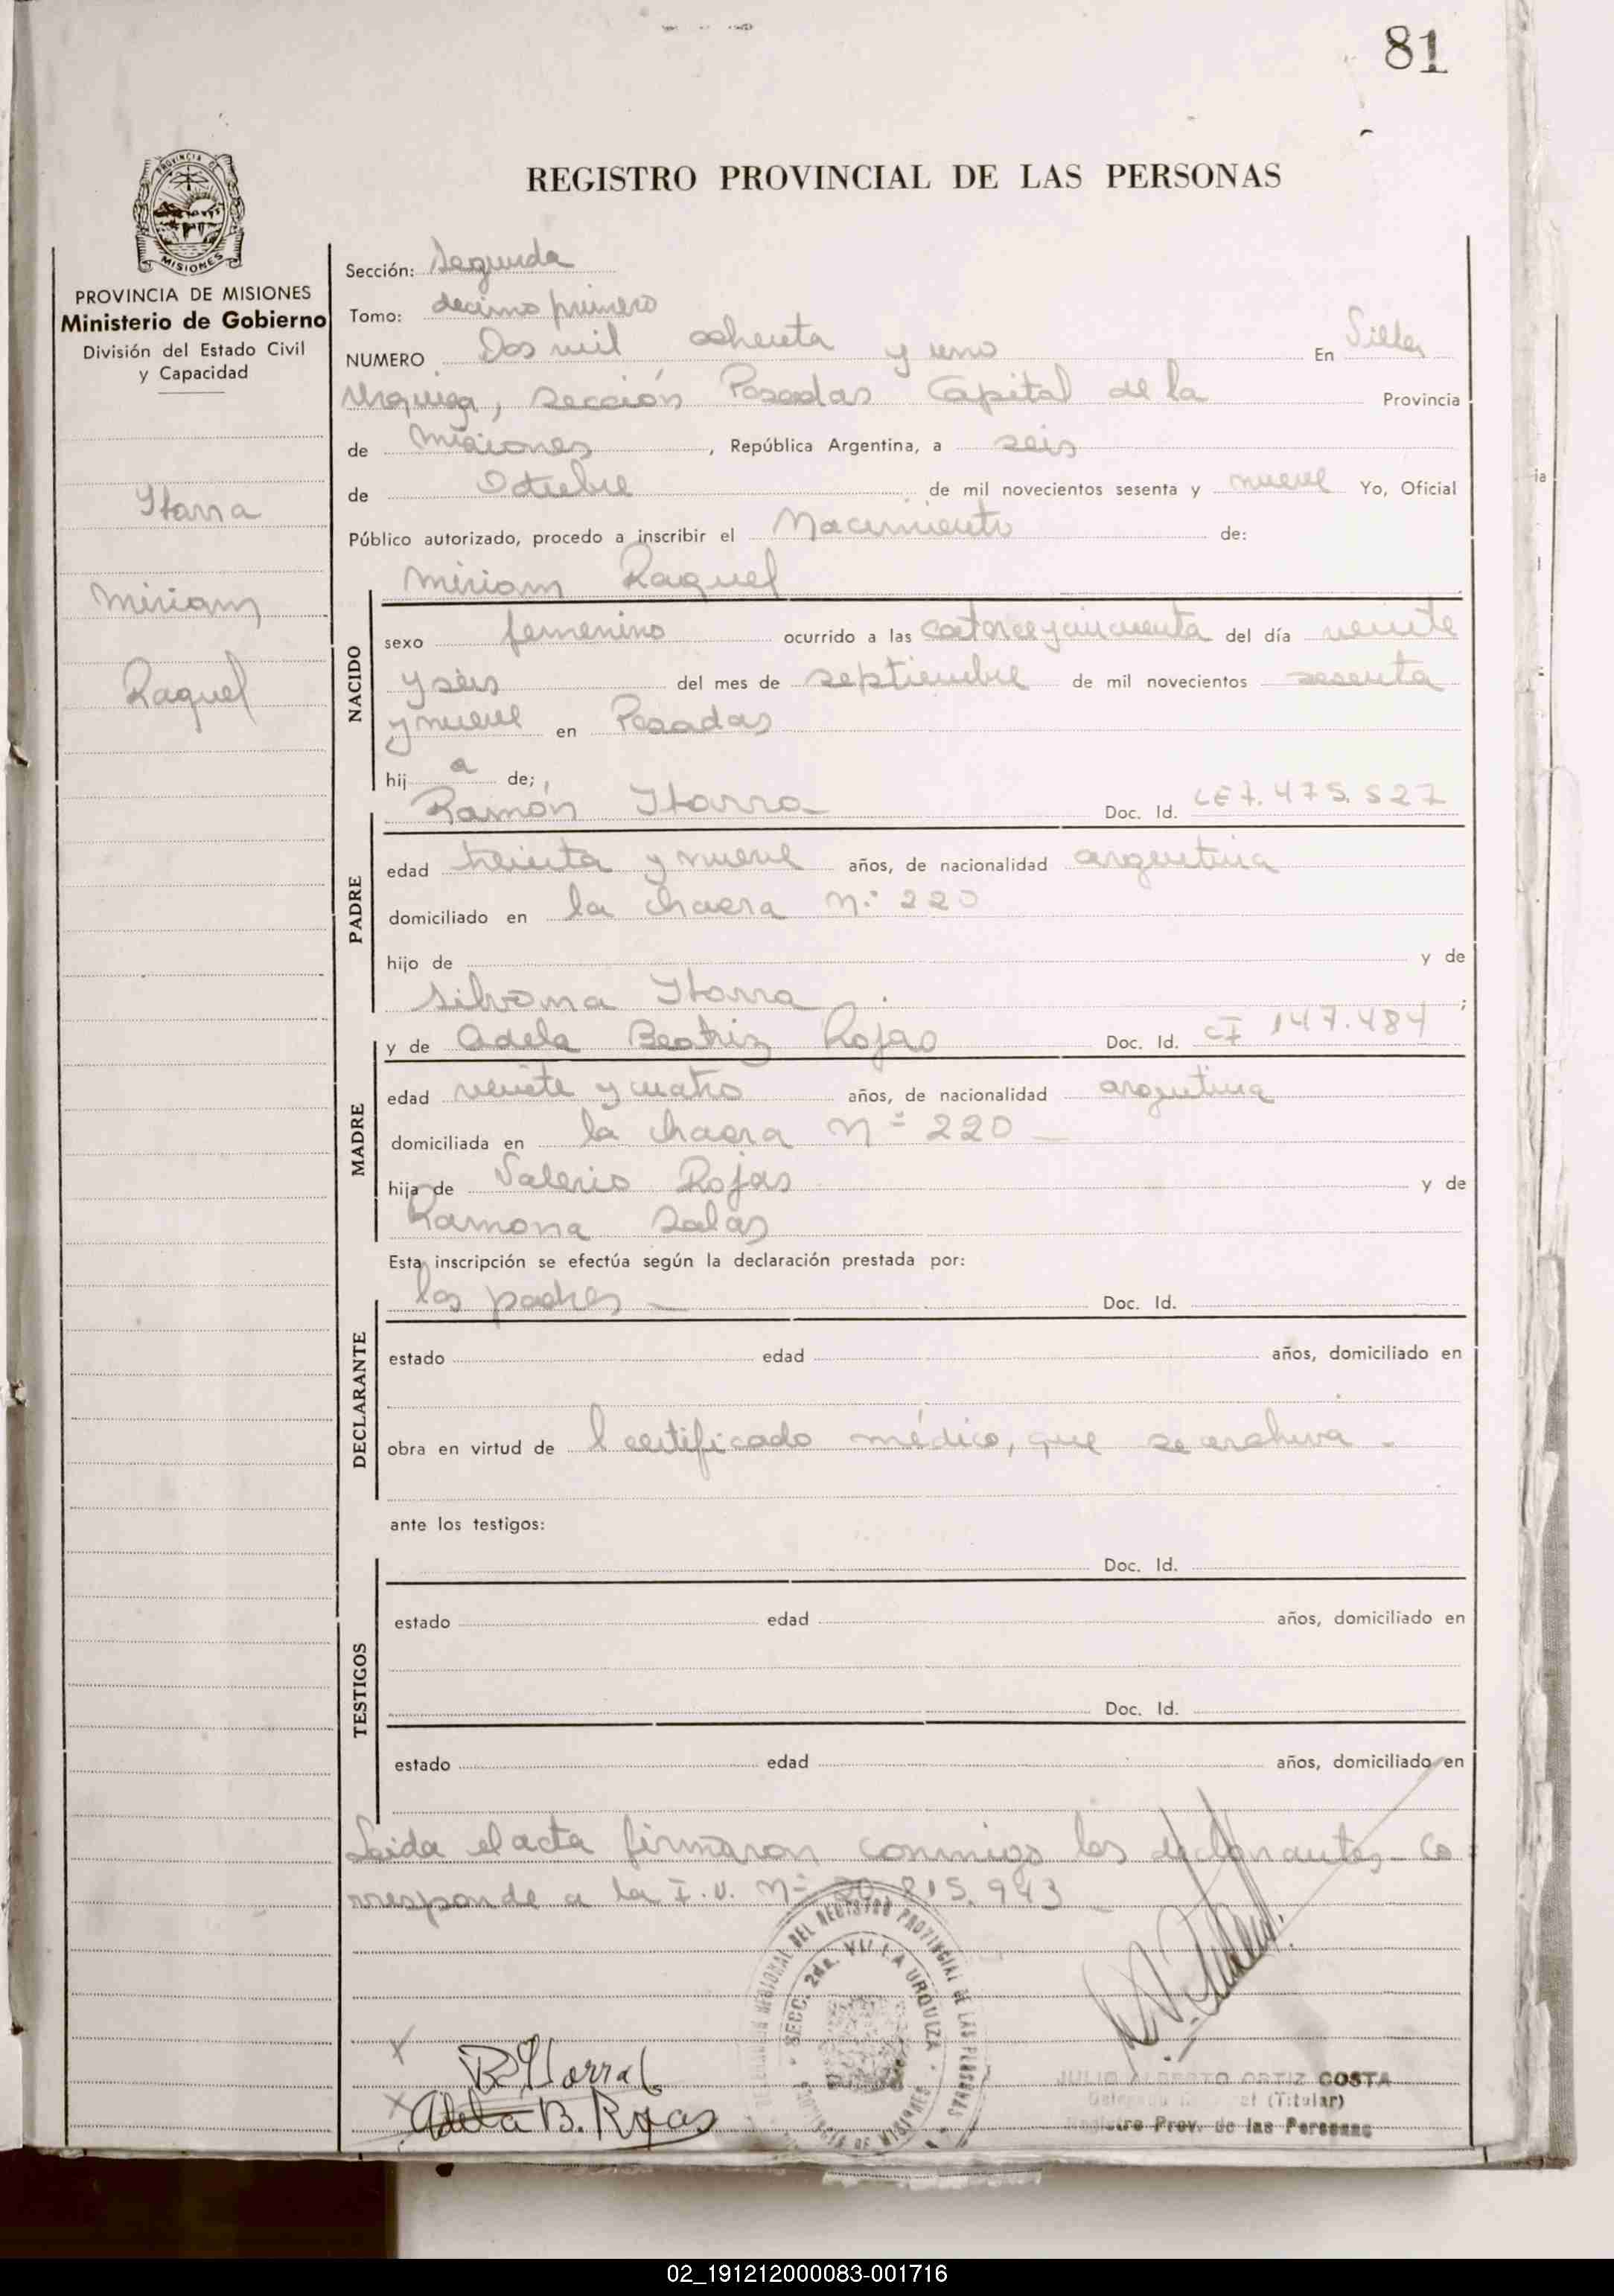 81
REGISTRO PROVINCIAL DE LAS PERSONAS
PROVINCIA DE MISIONES
Ministerio de Gobierno
División del Estado Civil
y Capacidad
Itarra
Miriam
Raquel
Sección: Segunda
Tomo: decimo primero
NUMERO Dos mil ochenta y uno En Villa
Urquiza, sección Posadas Capital de la Provincia
de Misiones, República Argentina, a seis
de Octubre de mil novecientos sesenta y nueve Yo, Oficial
Público autorizado, procedo a inscribir el Nacimiento de:
Miriam Raquel
NACIDO
sexo femenino ocurrido a las catorce y cincuenta del día veinte
y seis del mes de septiembre de mil novecientos sesenta
y nueve en Posadas
hij a de;
Ramón Itarra Doc. Id. LE 7.475.527
PADRE
edad treinta y nueve años, de nacionalidad argentina
domiciliado en la chacra N.º 220
hijo de y de
Silvana Itarra ;
y de Adela Beatriz Rojas Doc. Id. CI 147.484
MADRE
edad veinte y cuatro años, de nacionalidad argentina
domiciliada en la chacra Nº 220
hija de Valerio Rojas y de
Ramona Salas
Esta inscripción se efectúa según la declaración prestada por:
los padres Doc. Id.
DECLARANTE
estado edad años, domiciliado en
obra en virtud de l certificado médico, que se archiva.
ante los testigos:
Doc. Id.
TESTIGOS
estado edad años, domiciliado en
Doc. Id.
estado edad años, domiciliado en
Leida el acta firmaron conmigo los declarantes. Co
rresponde a la I.U. Nº 20.815.943
SECC. 2da. VILLA URQUIZA
REGIONAL DEL REGISTRO PROVINCIAL DE LAS PERSONAS
PROVINCIA DE MISIONES
Adela B. Rojas
JULIO ALBERTO ORTIZ COSTA
(Titular)
Registro Prov. de las Personas
02_191212000083-001716